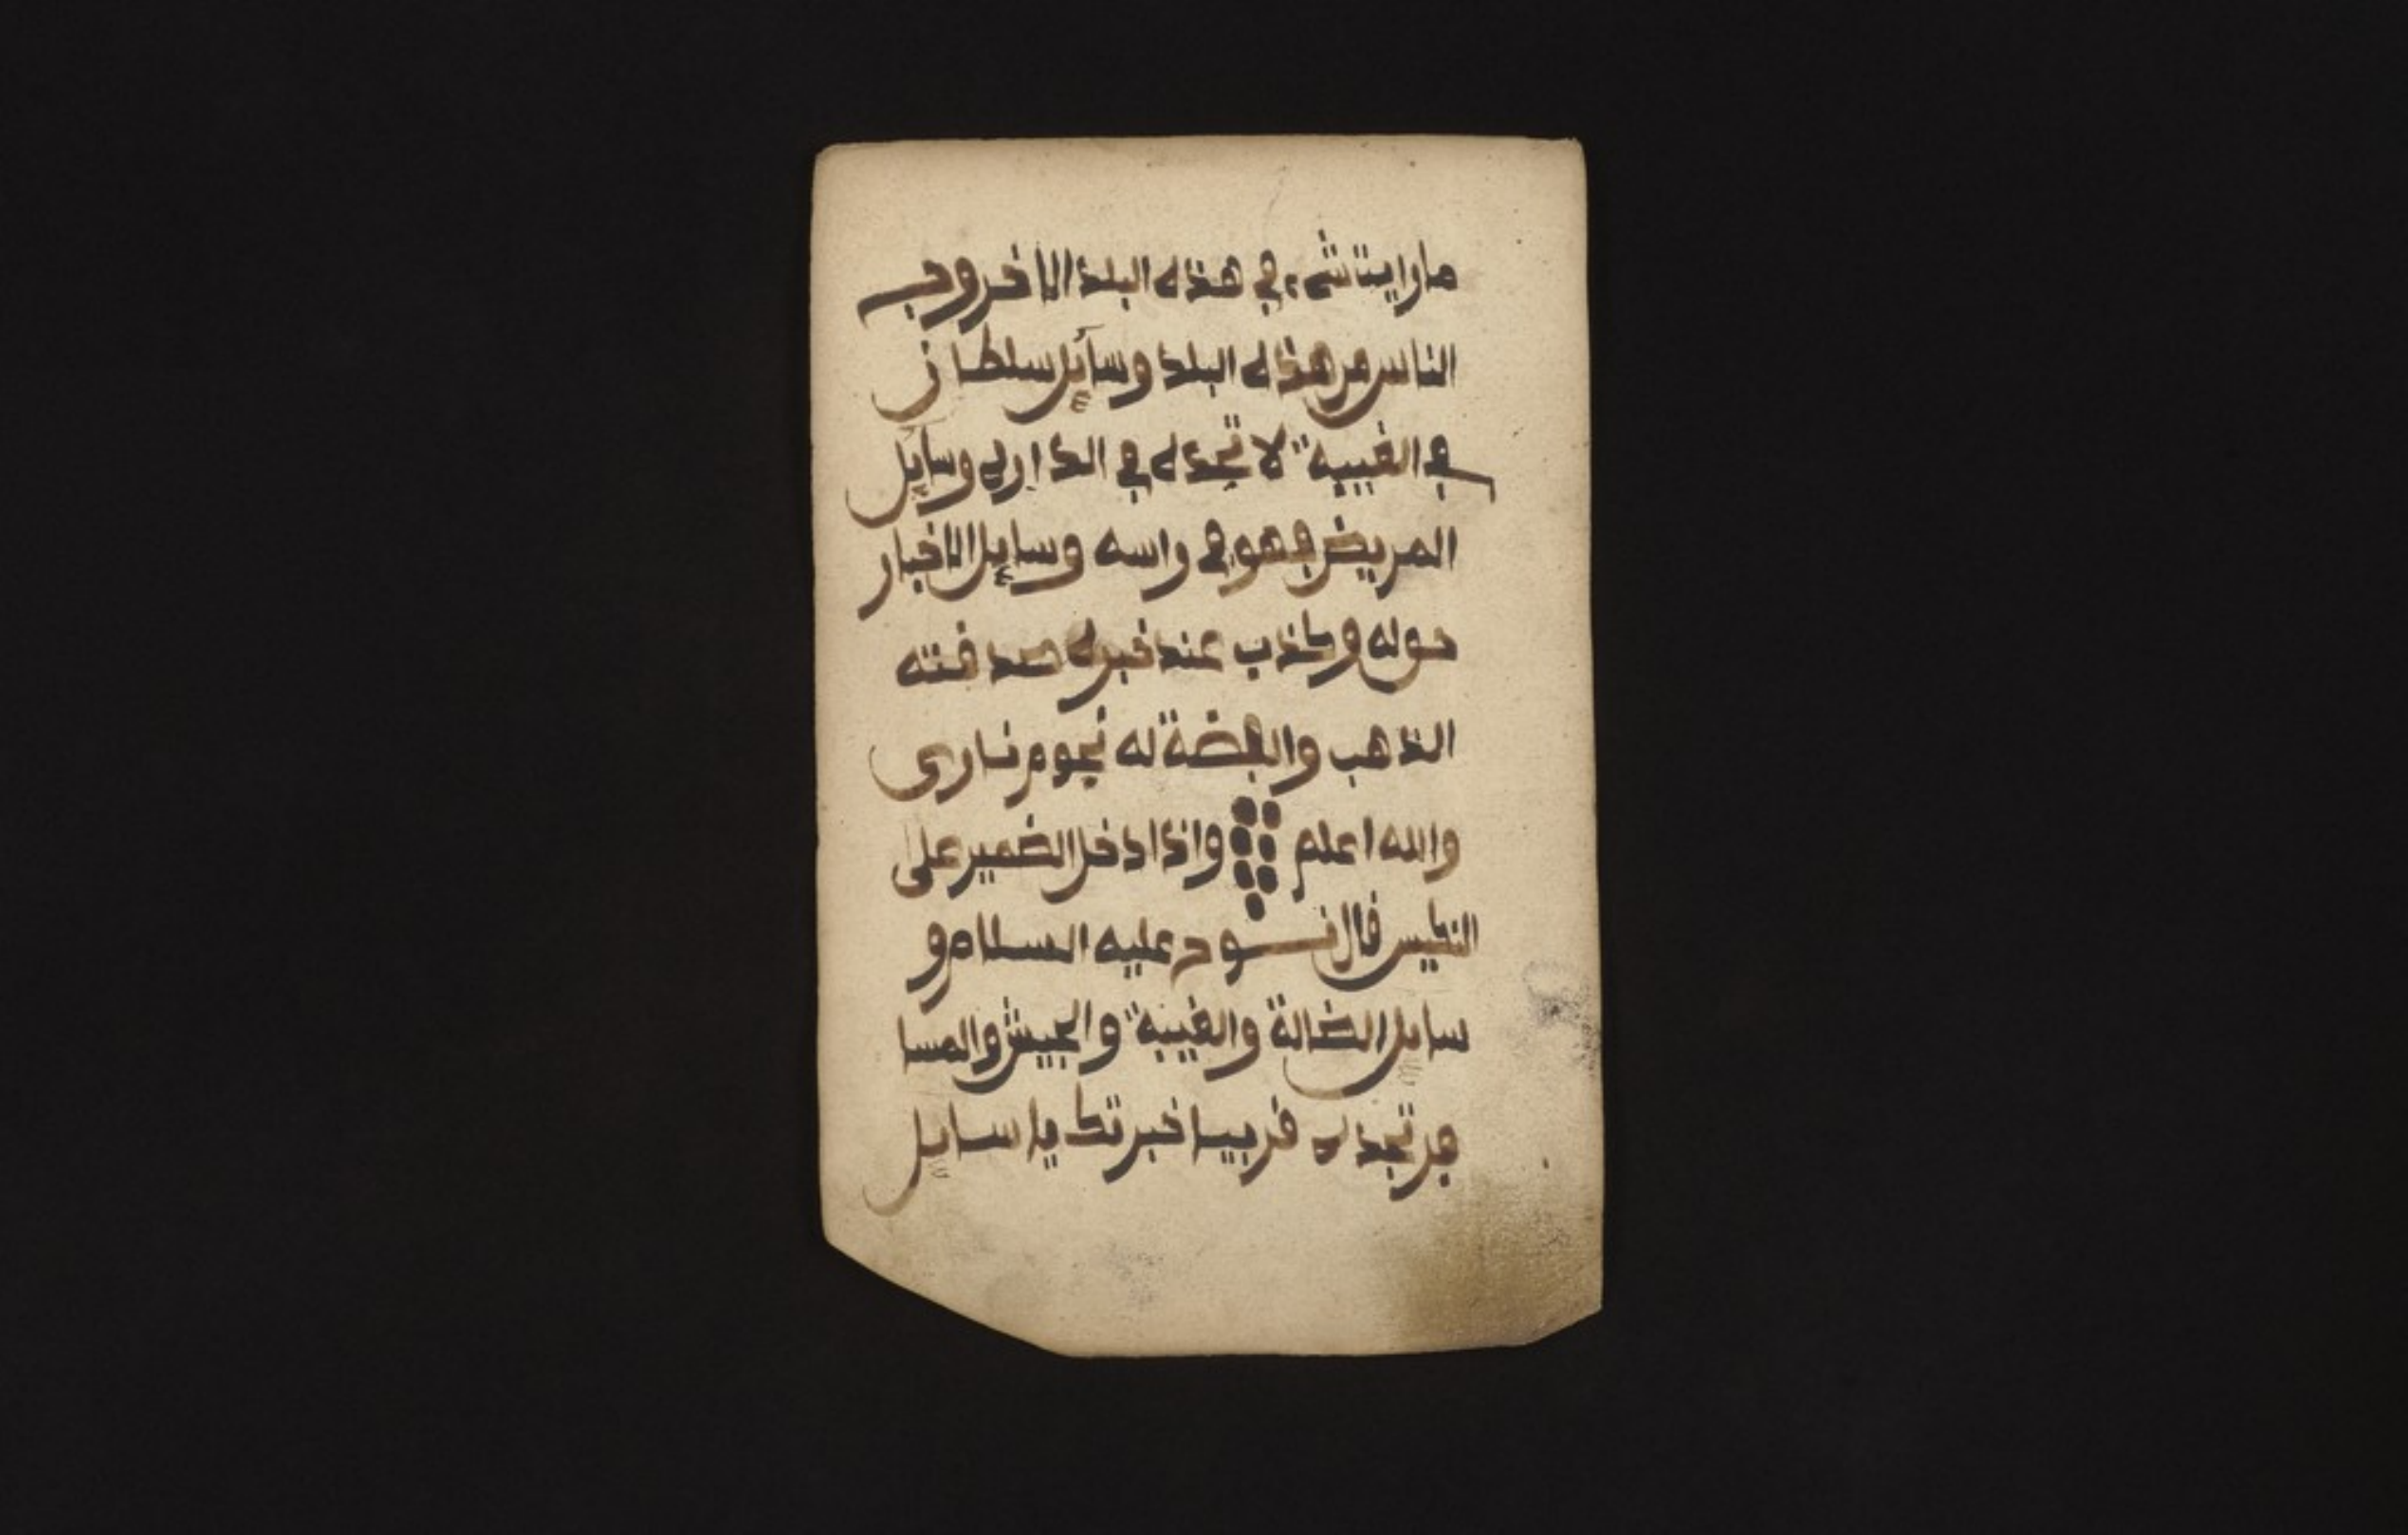 ما رايت شيء في هذه البلد الا خروج
الناس من هذه البلد وسائل سلطان
في الغيبة لا تجده في الدار وسايل
المريض فهو في راسه وسايل الاخبار
حوله وكذب عند خبره صدقته
الذهب والفضة له نجوم نارى
والله اعلم واذا دخل الضمير على
النكيس قال نوح عليه السلام و
سايل الضالة والغيبة والجيش والمسا
فر تجده قريبا خبرتك يا سايل